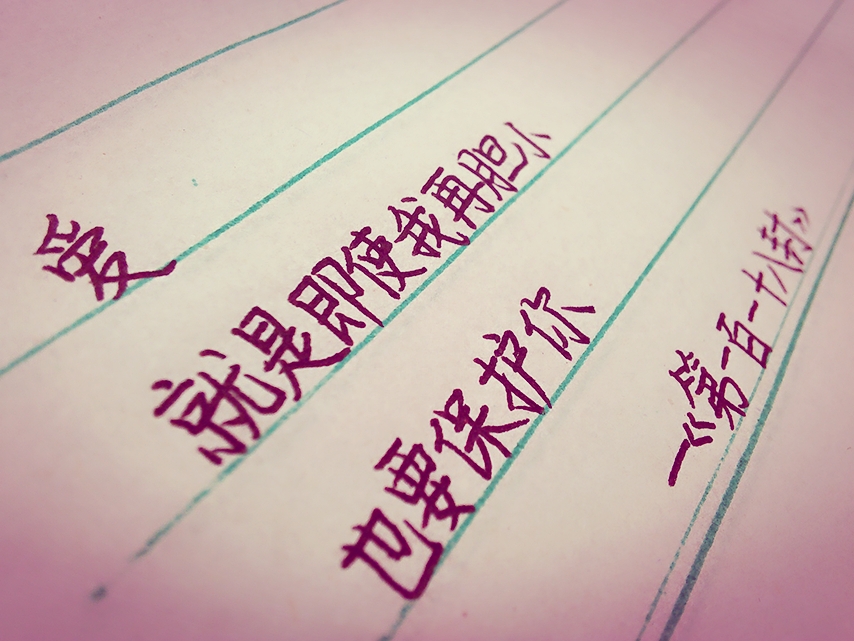 爱
就是即使我再胆小
也要保护你
—《第一百一十八封》